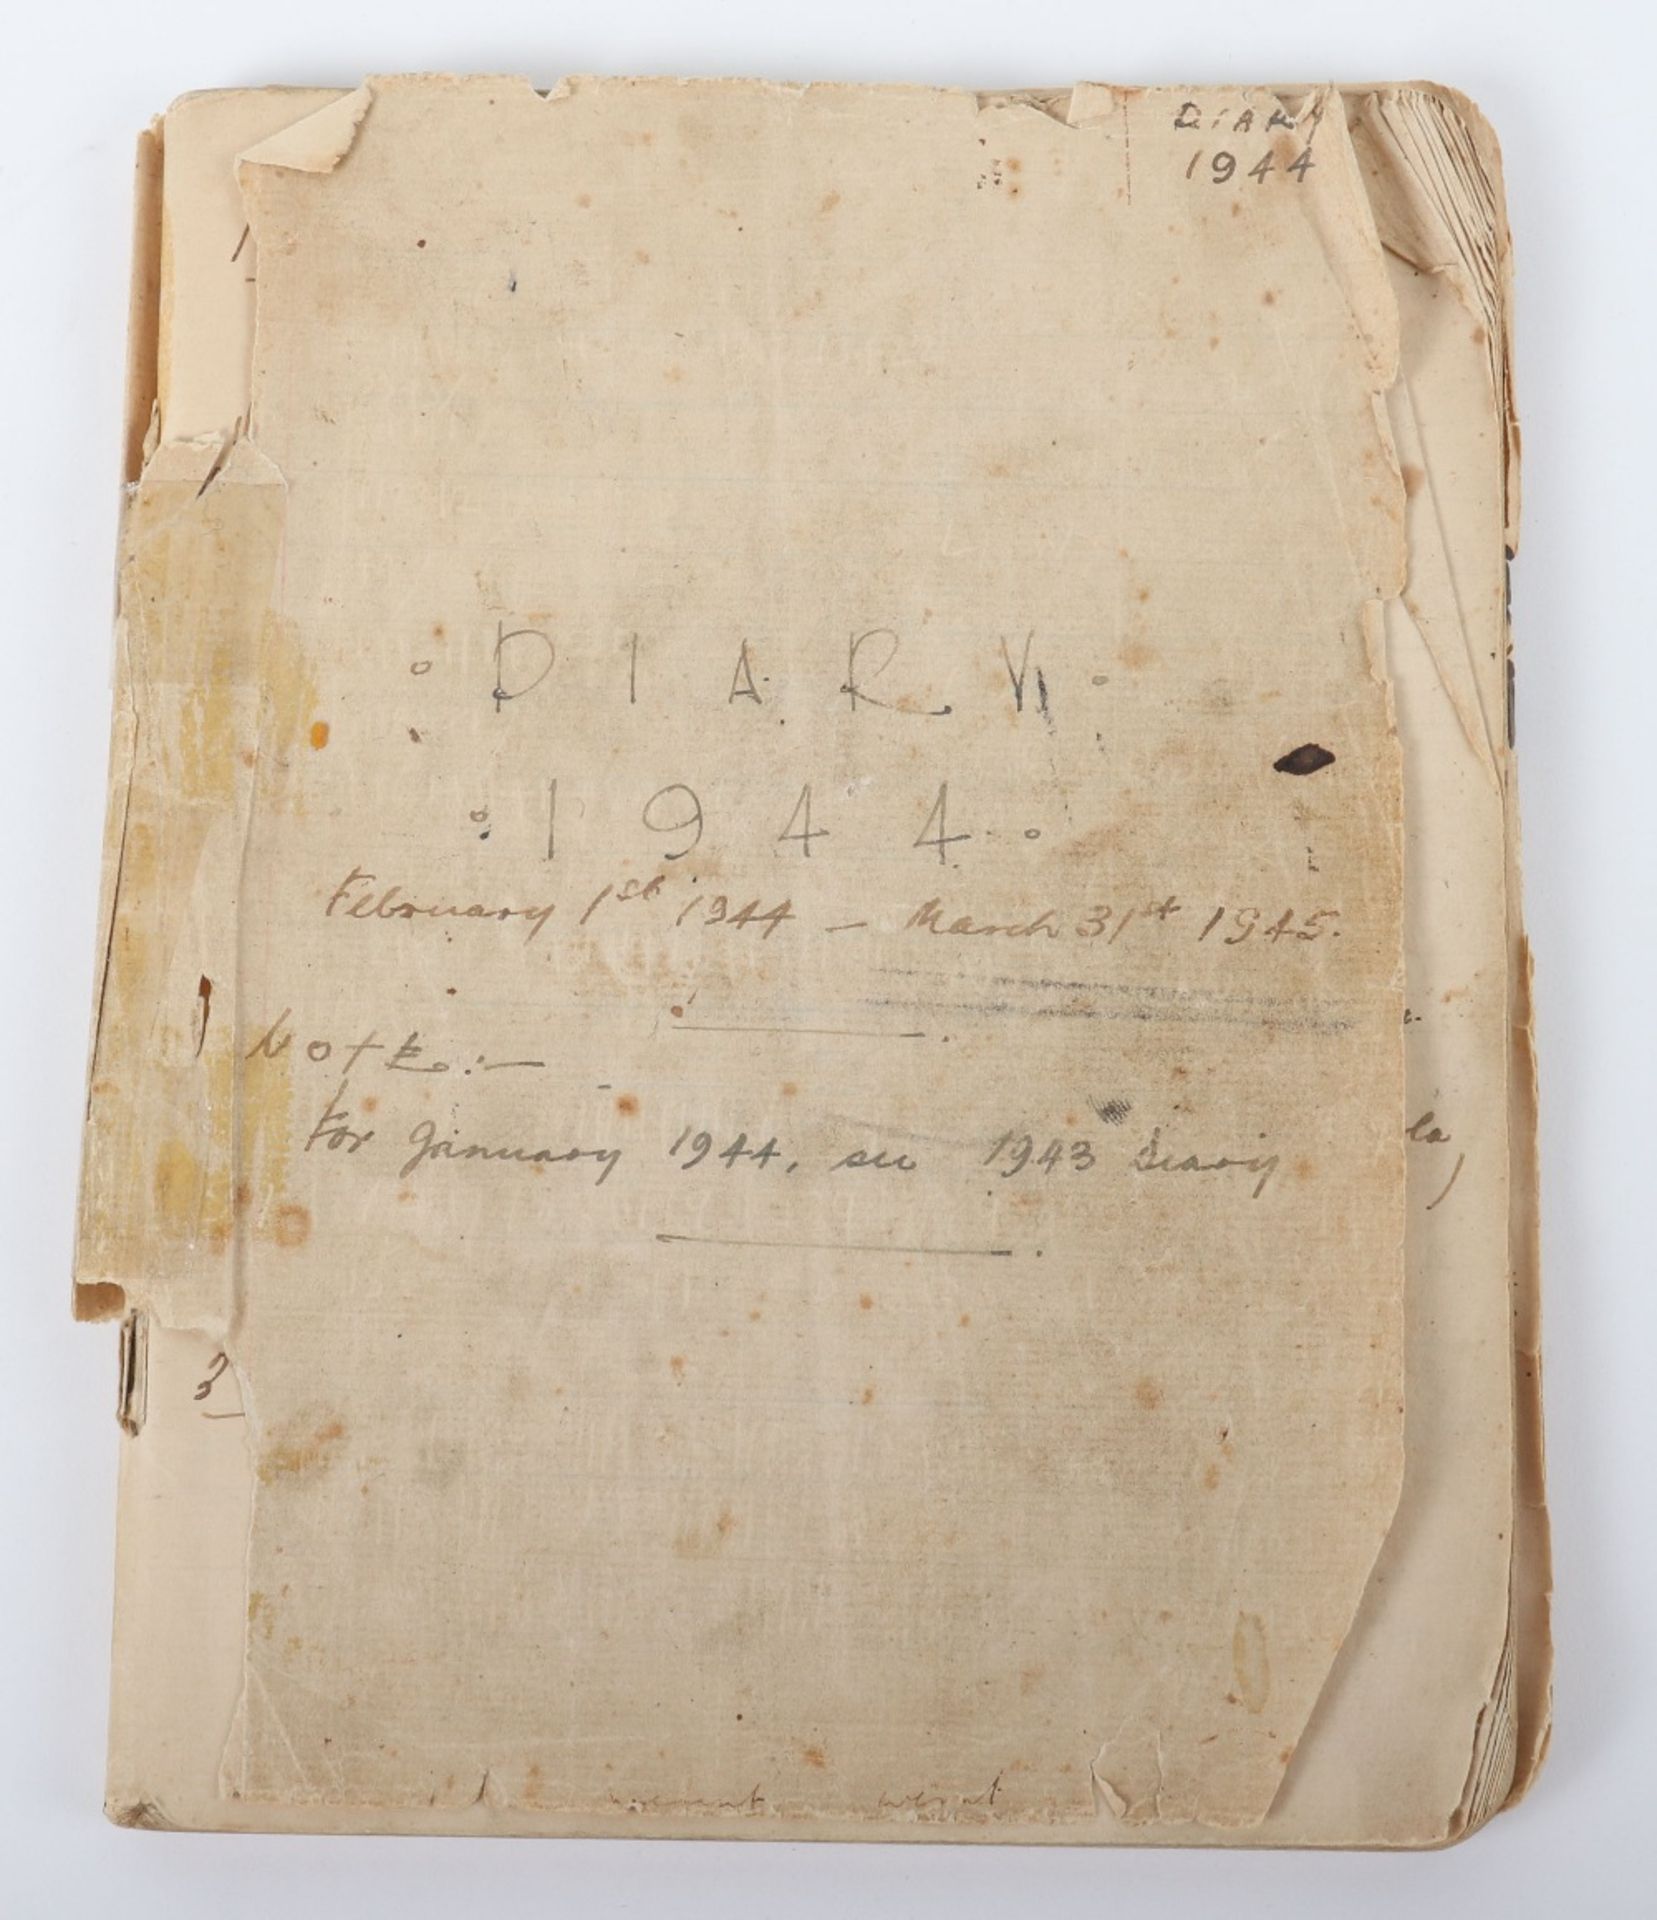 DIARY
1944
DIARY
1944
February 1st 1944 – March 31st 1945.
Note:–
For January 1944, see 1943 Diary
la
)
3
went